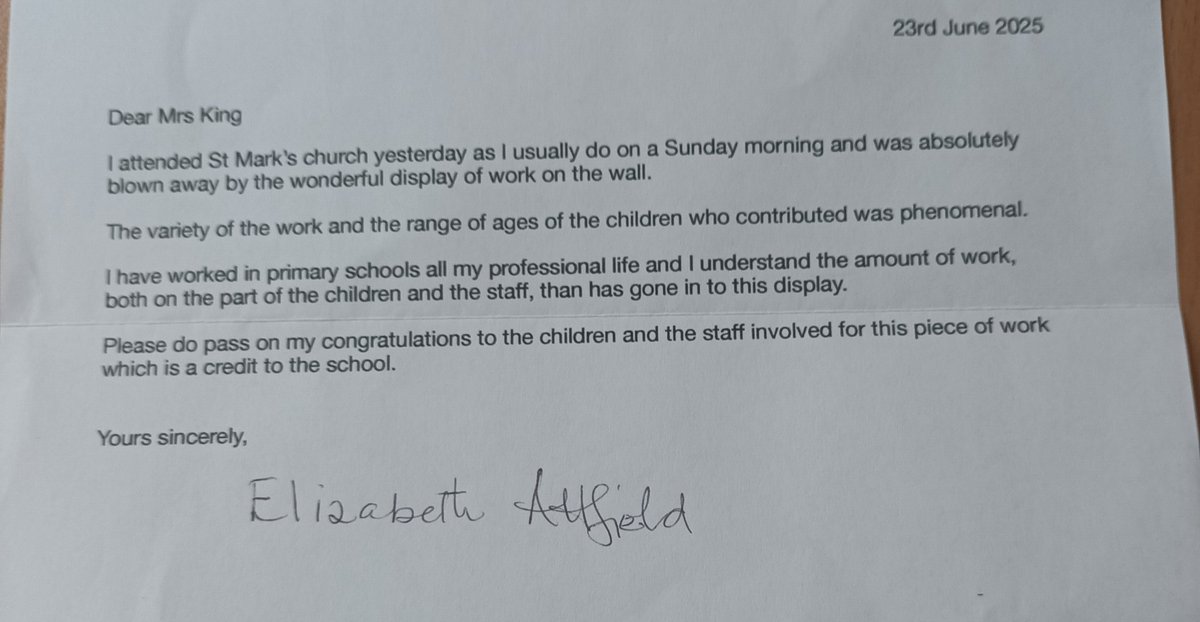 23rd June 2025
Dear Mrs King
I attended St Mark's church yesterday as I usually do on a Sunday morning and was absolutely
blown away by the wonderful display of work on the wall.
The variety of the work and the range of ages of the children who contributed was phenomenal.
I have worked in primary schools all my professional life and I understand the amount of work,
both on the part of the children and the staff, than has gone in to this display.
Please do pass on my congratulations to the children and the staff involved for this piece of work
which is a credit to the school.
Yours sincerely,
Elizabeth Attfield